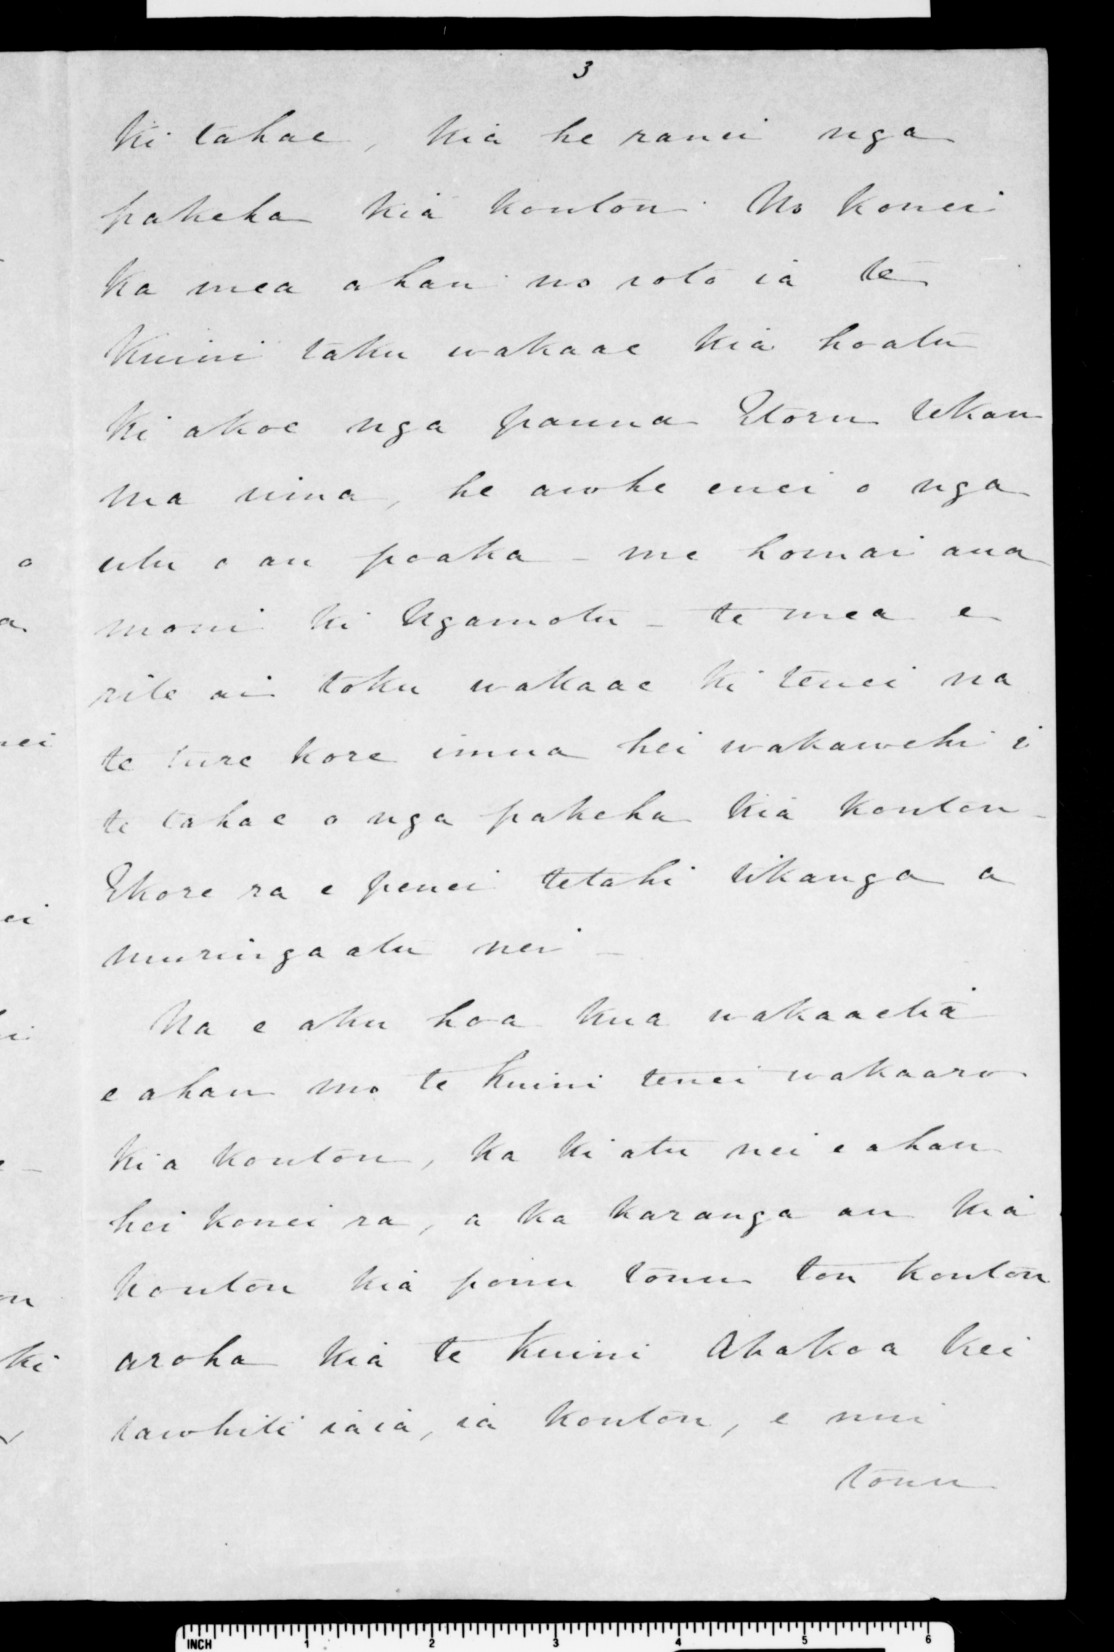 3
Ki tahae, Kia he ranei nga
pakeha Kia Koutou. No Konei
Ka mea ahau no roto ia te
Kuini taku wakaae Kia hoatu
Ki akoe nga pauna Etoru tekau
ma rima, he awhe enei o nga
utu o au poaka - me homai aua
moni Ki Ngamotu - te mea e
rite ai toku wakaae Ki tenei na
te ture kore imua hei wakawehi i
te tahae o nga pakeha Kia Koutou -
Ekore ra e penei tetahi tikanga a
muringaatu nei -
Na e aku hoa Kua wakaaetia
e ahau mo te Kuini tenei wakaaro
Kia Koutou, Ka Ki atu nei e ahau
hei Konei ra, a Ka Karanga au Kia
Koutou Kia ponu tonu tou Koutou
aroha Kia te Kuini Ahakoa Kei
tawhiti iaia, ia Koutou, e nui
tonu
INCH 1 2 3 4 5 6